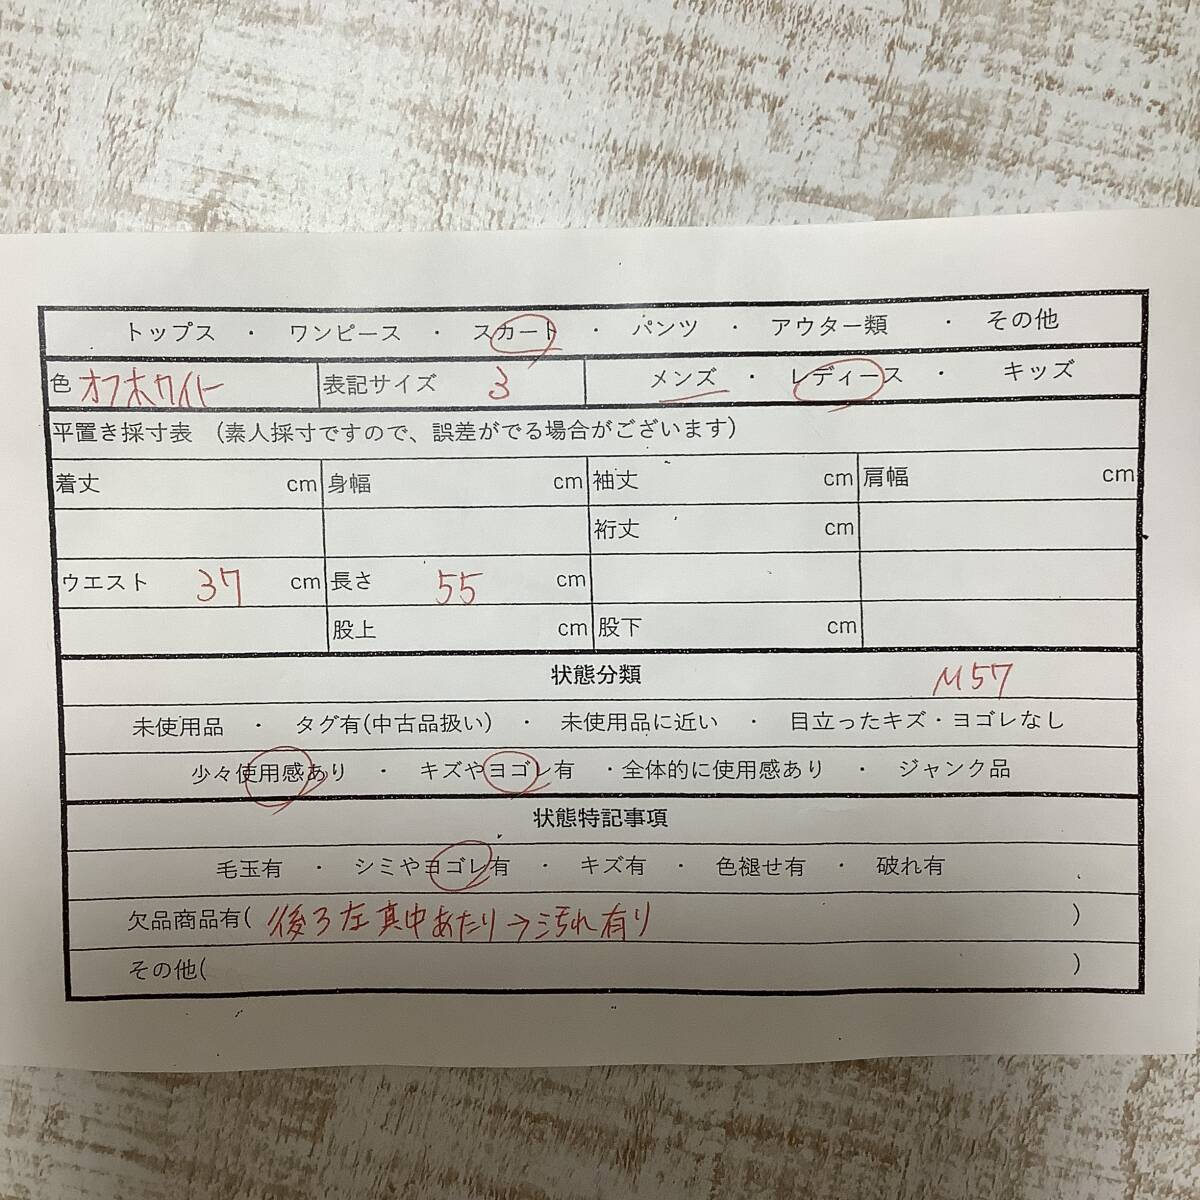 トップス ・ ワンピース ・ スカート ・ パンツ ・ アウター類 ・ その他
色 オフホワイト 表記サイズ 3 メンズ ・ レディース ・ キッズ
平置き採寸表 （素人採寸ですので、誤差がでる場合がございます）
着丈 cm 身幅 cm 袖丈 cm 肩幅 cm
裄丈 cm
ウエスト 37 cm 長さ 55 cm
股上 cm 股下 cm
状態分類 M57
未使用品 ・ タグ有(中古品扱い) ・ 未使用品に近い ・ 目立ったキズ・ヨゴレなし
少々使用感あり ・ キズやヨゴレ有 ・全体的に使用感あり ・ ジャンク品
状態特記事項
毛玉有 ・ シミやヨゴレ有 ・ キズ有 ・ 色褪せ有 ・ 破れ有
欠品商品有( 後ろ左真中あたり→汚れ有り )
その他( )